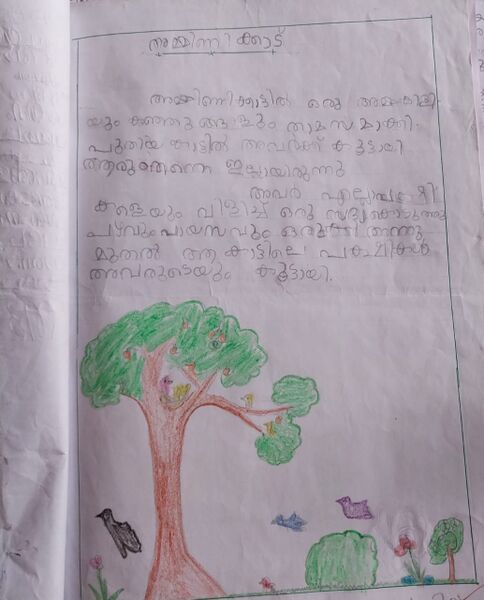 അമ്മിണിക്കാട്
അമ്മിണിക്കാട്ടിൽ ഒരു അമ്മകിളി
യും കുഞ്ഞുങ്ങളും താമസമാക്കി.
പുതിയ കാട്ടിൽ അവർക്ക് കൂട്ടായി
ആരുംതന്നെ ഇല്ലായിരുന്നു
അവർ എല്ലാപക്ഷി
കളെയും വിളിച്ച് ഒരു സദ്യകൊടുത്തു
പഴവും പായസവും ഒരുക്കി അന്നു
മുതൽ ആ കാട്ടിലെ പക്ഷികൾ
അവരുടെയും കൂട്ടായി.